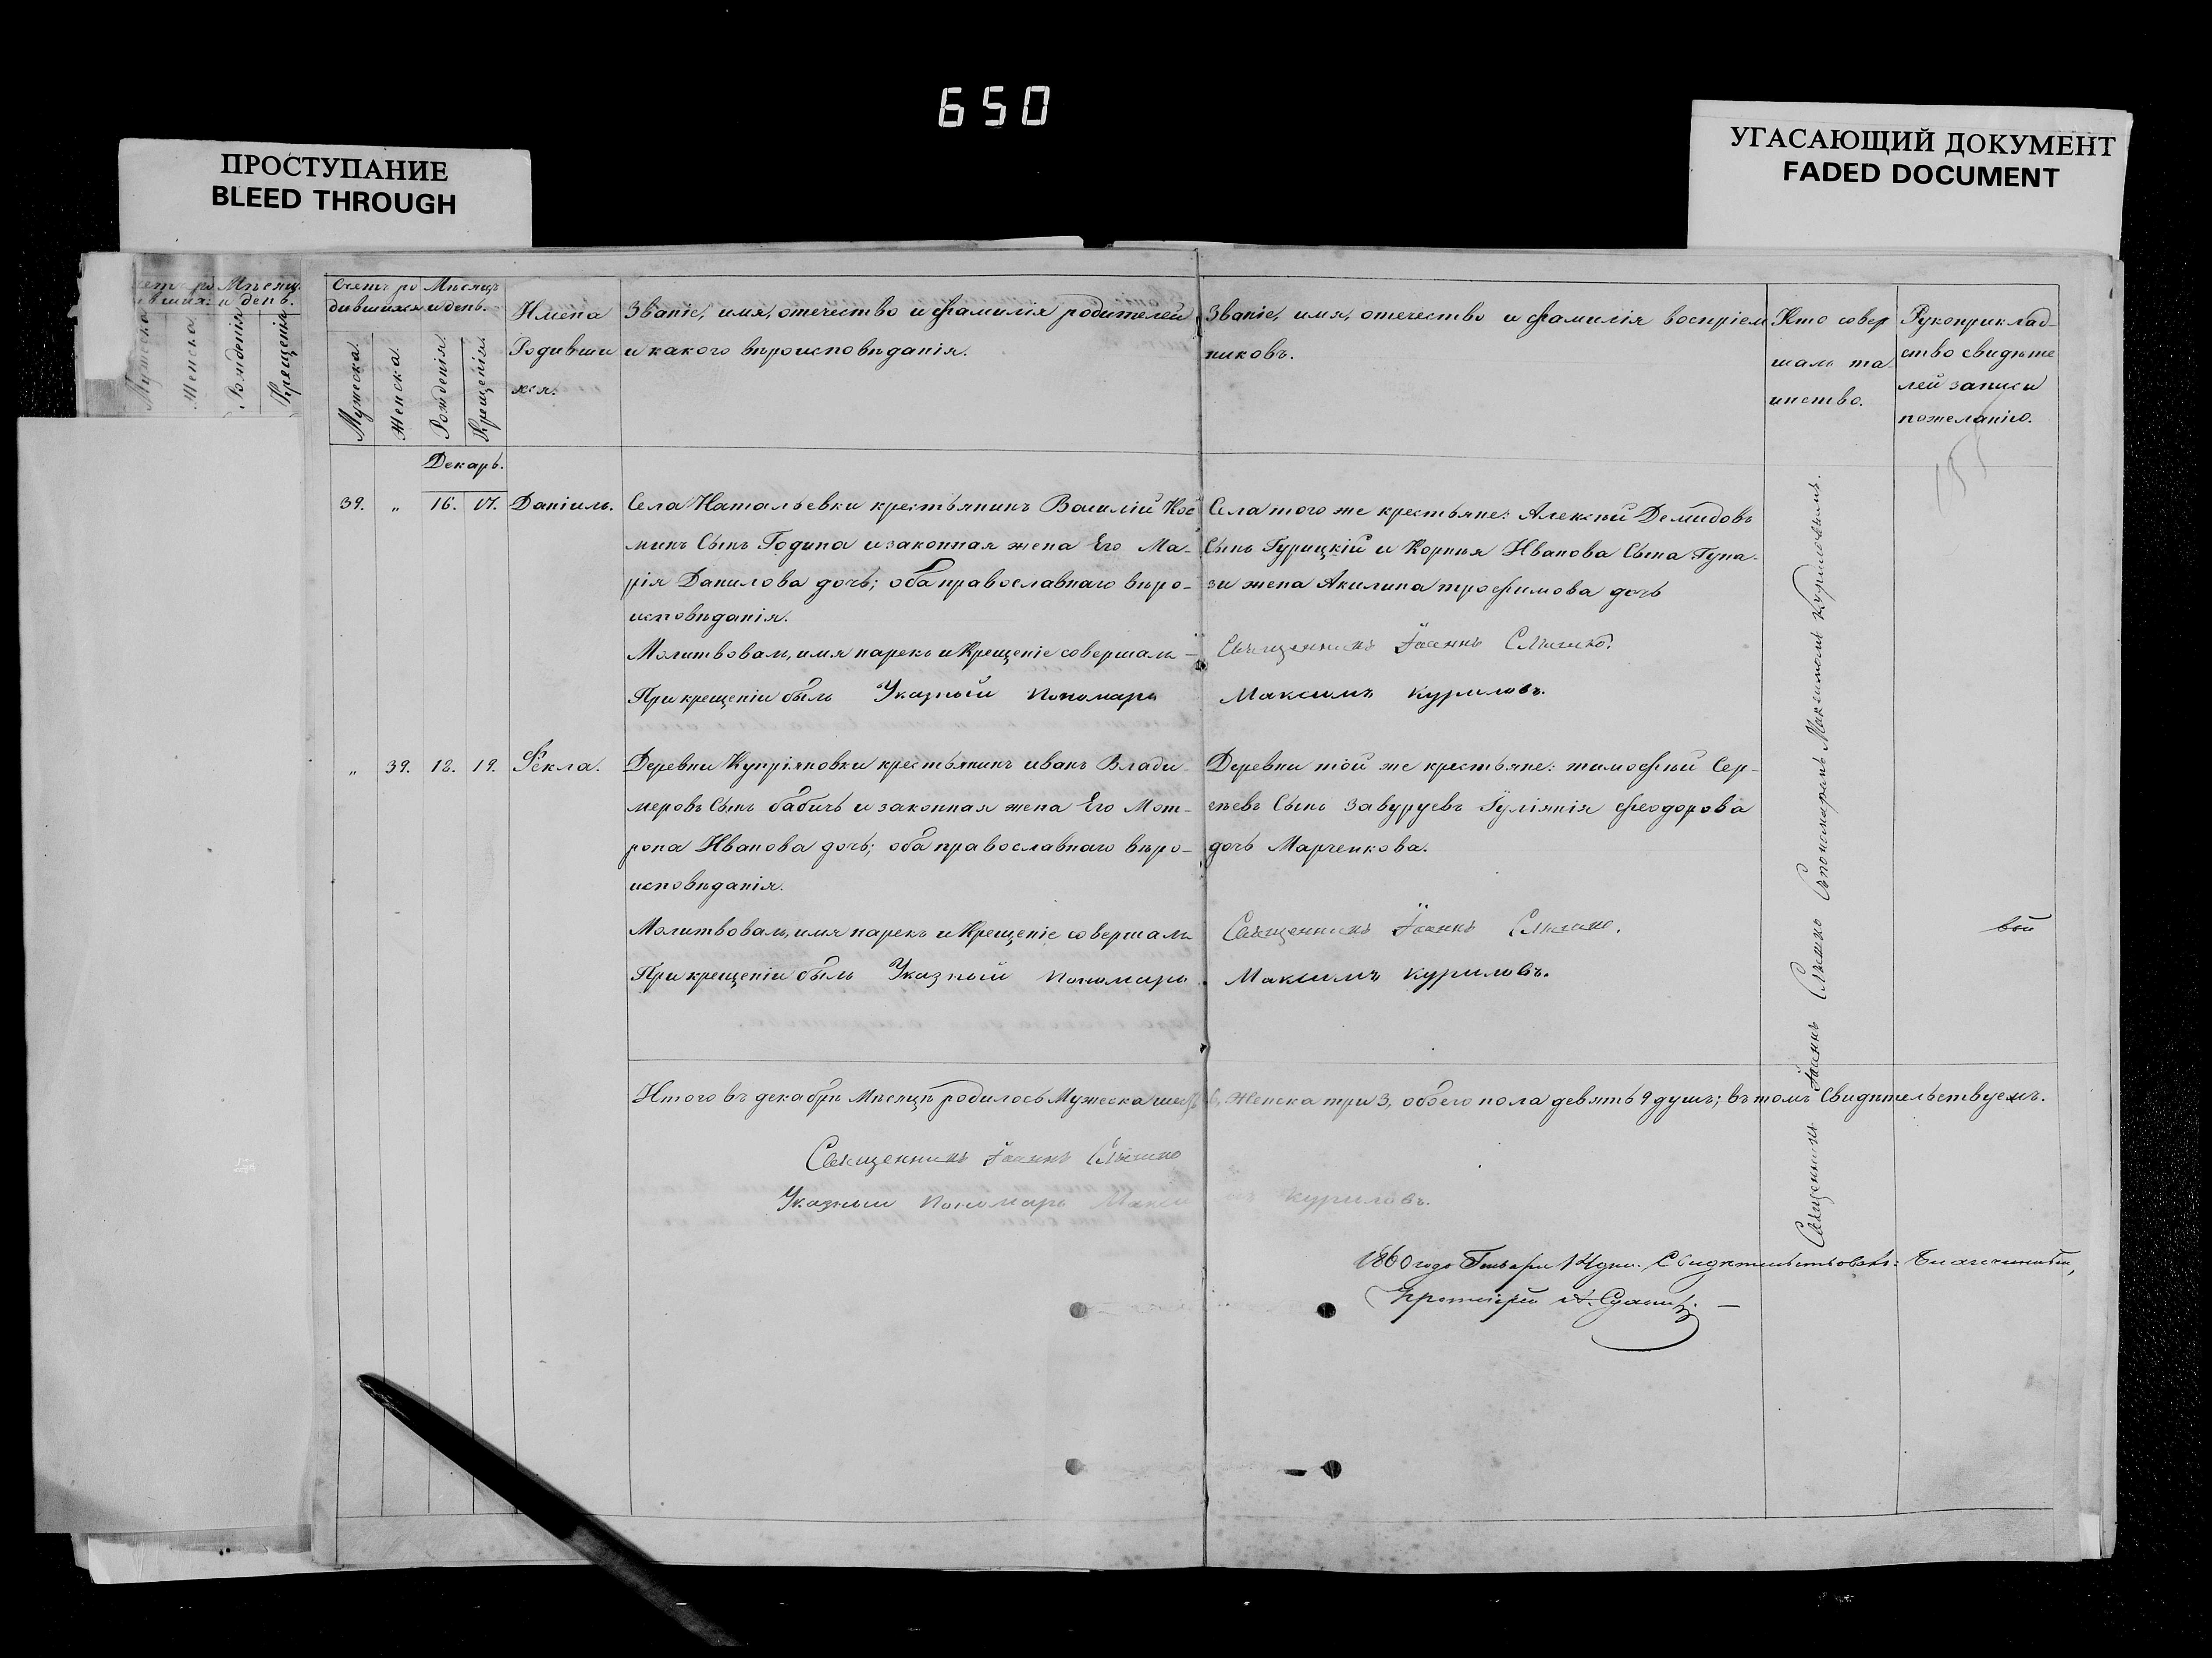 650
ПРОСТУПАНИЕ
BLEED THROUGH
УГАСАЮЩИЙ ДОКУМЕНТ
FADED DOCUMENT
Мѣсяцъ
и день.
Мужеска
Женска
Рожденія
Крещенія
Счетъ ро
дившихся
Мѣсяцъ
и день.
Мужеска.
Женска.
Рожденія.
Крещенія.
Имена
Родивши
хся.
Званіе, имя, отечество и фамилія родителей
и какого вѣроисповѣданія.
Званіе, имя, отечество и фамилія воспріем
никовъ.
Кто совер
шалъ та
инство.
Рукоприклад-
ство свидѣте
лей записи
пожеланію.
Декаръ.
39. „ 16. 17. Даніилъ.
Села Натальевки крестьянинъ Василій Кос
минъ Сынъ Година и законная жена Его Ма-
рія Данилова дочь; оба православнаго вѣро-
исповѣданія.
Молитвовалъ, имя нарекъ и Крещеніе совершалъ –
При крещеніи былъ Указный пономарь
Села того же крестьяне: Алексѣй Демидовъ
Сынъ Гурицкій и Корнѣя Иванова Сына
жена Акилина трофимова дочь
Священникъ Іоаннъ
Максимъ Куриловъ.
„ 39. 18. 19. Фекла.
Деревни Купріяновки крестьянинъ иванъ Влади-
меровъ Сынъ бабичъ и законная жена Его Мот-
рона Иванова дочь; оба православнаго вѣро-
исповѣданія.
Молитвовалъ, имя нарекъ и Крещеніе совершалъ
При крещеніи былъ Указный пономарь
Деревни той же крестьяне: тимофѣй Сер-
гѣевъ Сынъ Іуліянія феодорова
дочь Марченкова.
Священникъ Іоаннъ
Максимъ Куриловъ.
Священникъ Іоаннъ Съпономаремъ Максимомъ Куриловымъ.
Итого въ декабрѣ Мѣсяцѣ родилось Мужеска шесть 6, Женска три 3, обоего пола девять 9 душъ; въ томъ Свидѣтельствуемъ.
Священникъ Іоаннъ
Указный пономарь Макси Куриловъ.
1860 года Генваря 14 дня. Свидѣтельствовалъ: Благочинный,
Протоіерей